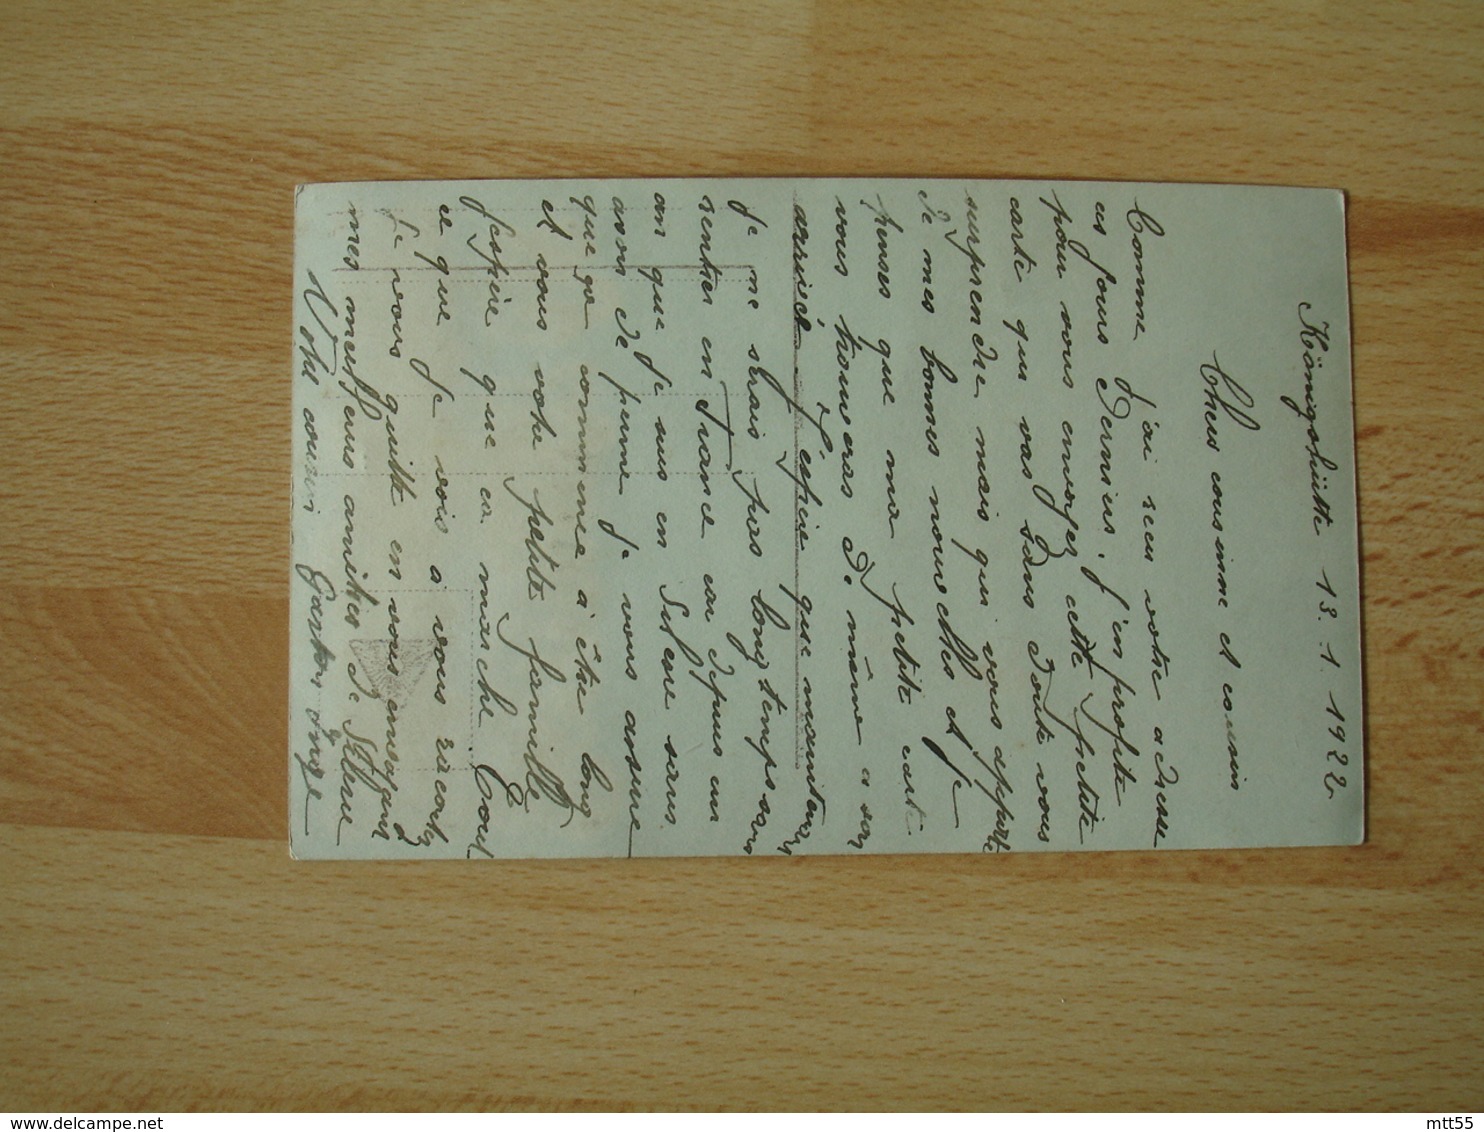 Königshütte 13.1.1922
Chers cousinne et cousin
Comme j'ai reçu votre adresse
ces jours derniers, j'en profite
pour vous envoyez cette petite
carte qui vas sans doute vous
surprendre mais qui vous apporte
de mes bonnes nouvelles et je
penses que ma petite carte
vous trouveras de même à son
arrivée. J'espère que maintenant
je ne serais pas longtemps sans
rentrer en France car depuis un
an que je suis en Silésie sans
avoir de perme je vous assure
que ça commence à être long
et vous votre petite famille
J'espère que ça marche Tout
ce que je vois à vous racontez
Je vous quitte en vous envoyant
mes meilleurs amitiés de Silésie
Votre cousin Gaston
mtt55